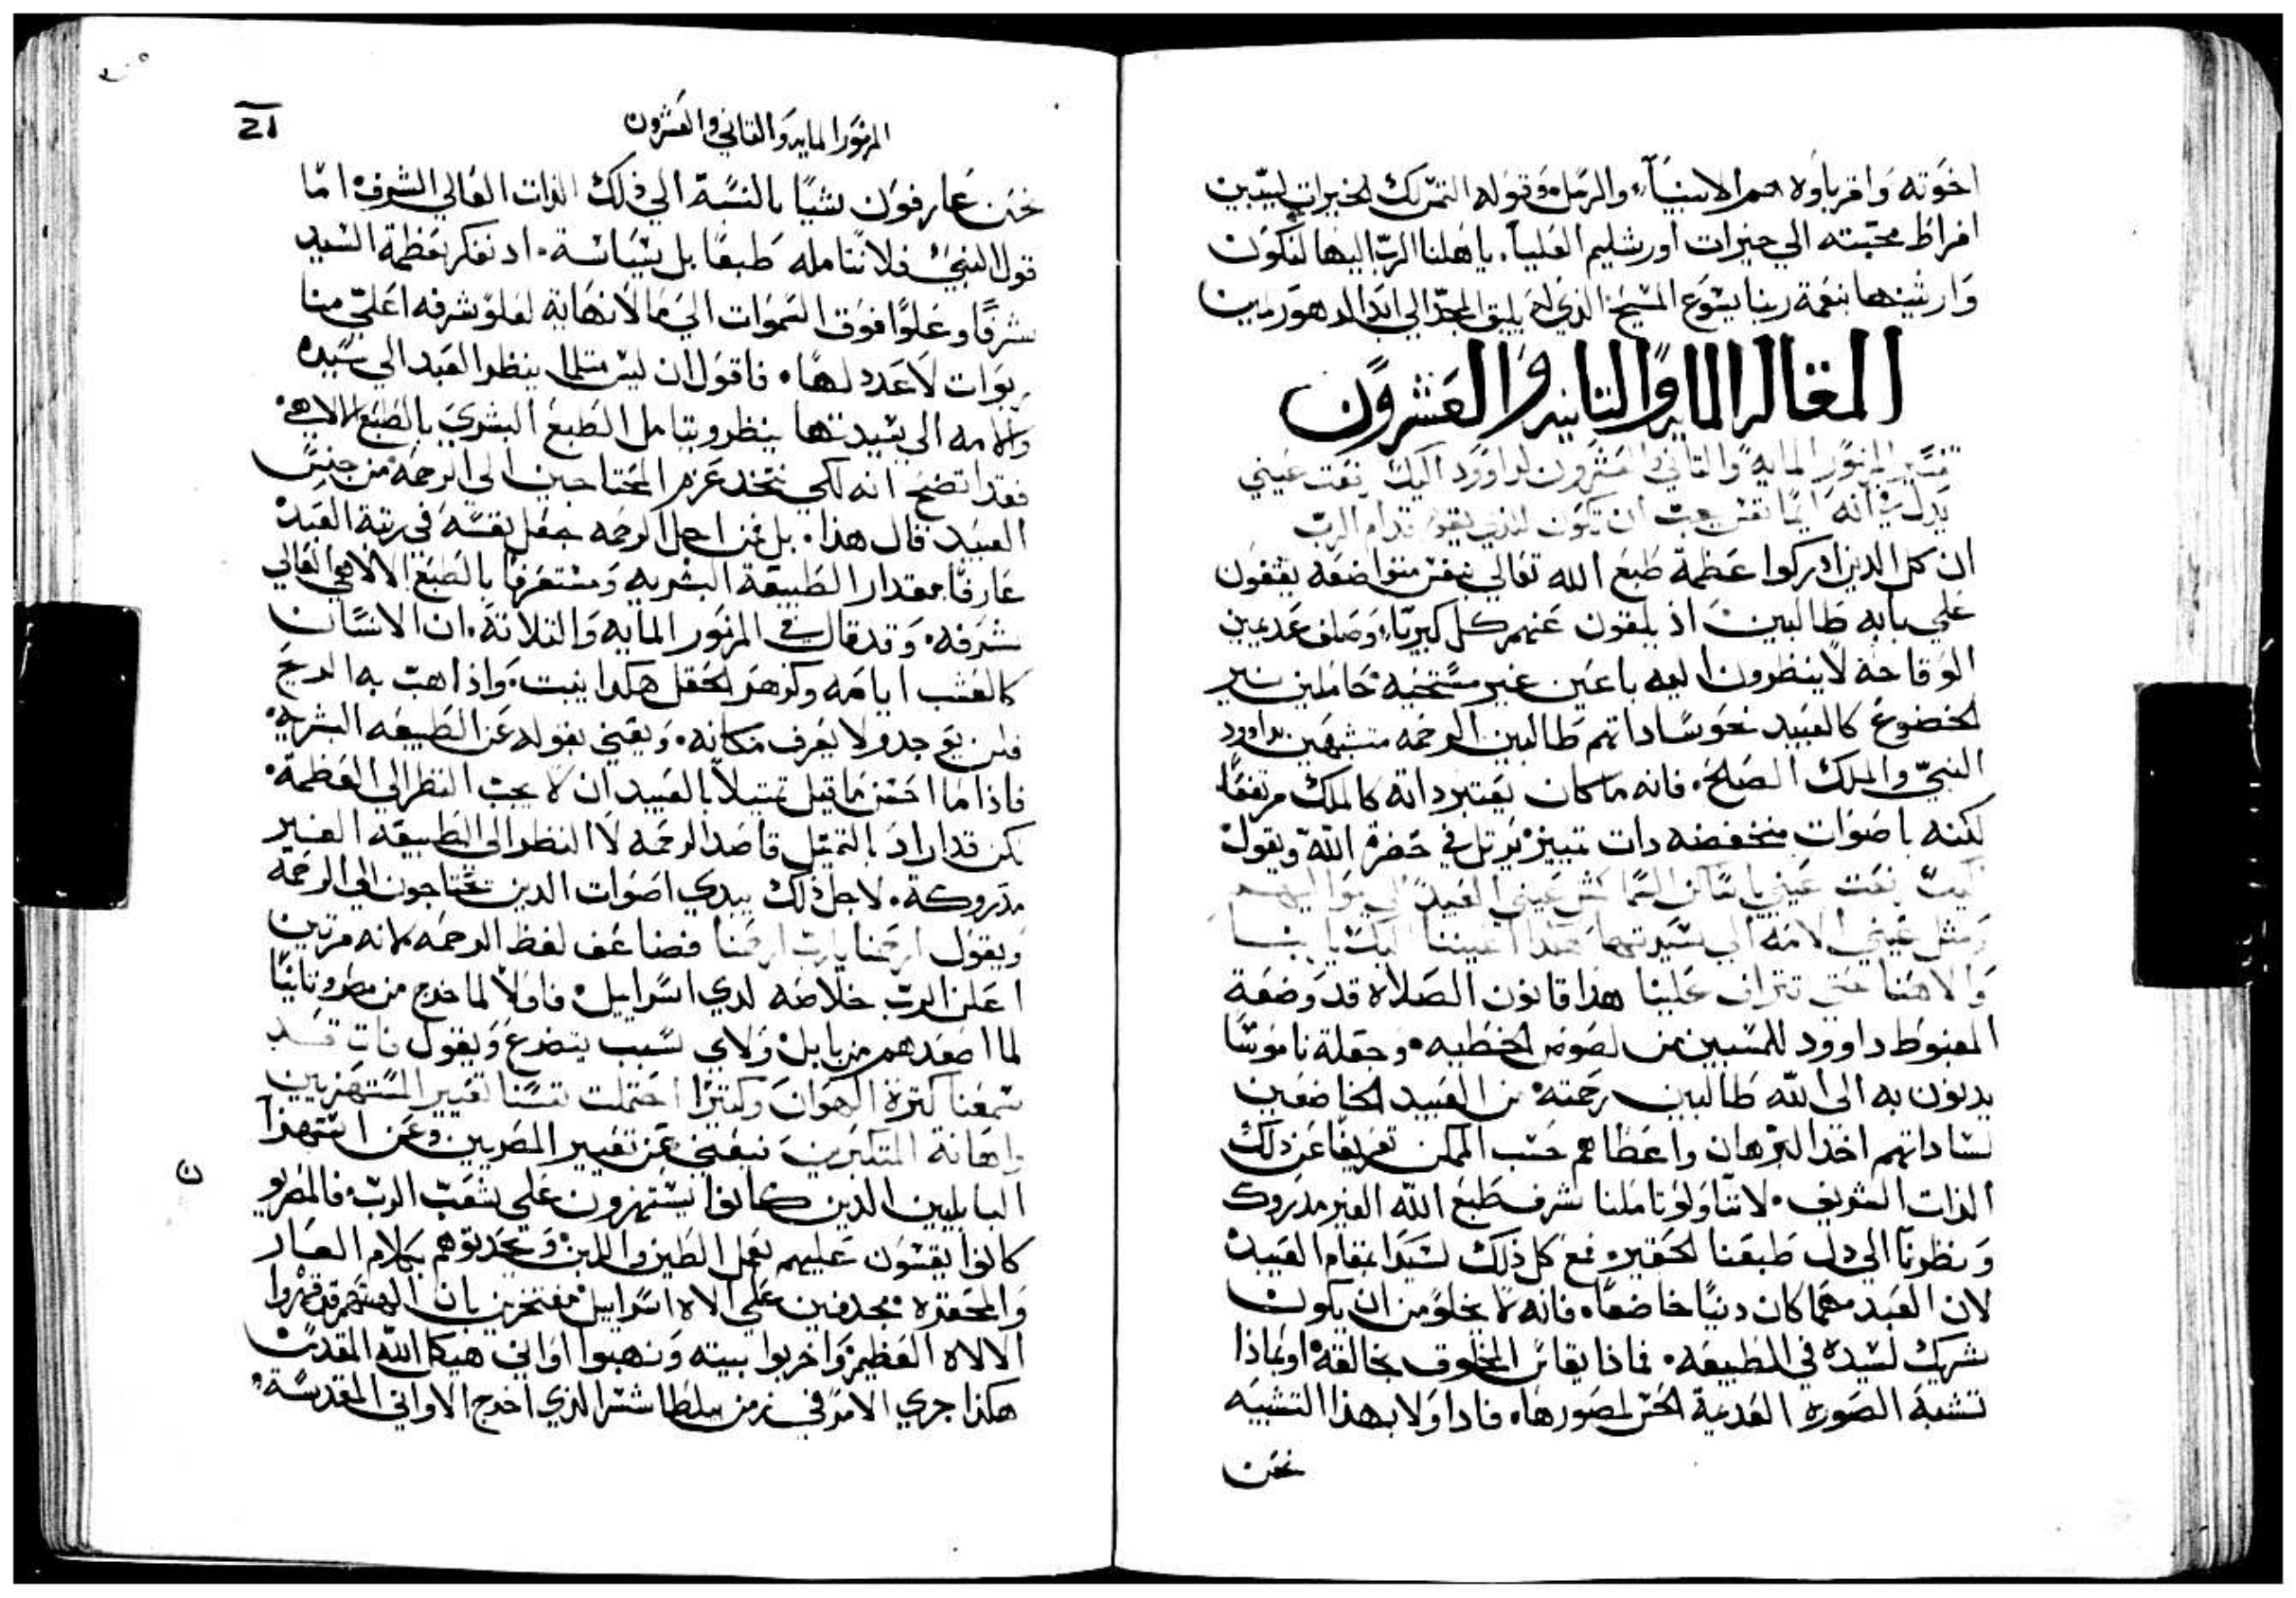 اخوته واقرباوه هم الانبيآء والرسل وقوله التمس لك الخيرات ليبين
افراط محبته الي خيرات اورشليم العليا. ياهلنا الرب اليها لنكون
وارثينها بنعمة ربنا يسوع المسيح الذي له يليق المجد الي ابد الدهور امين
المقاله المايه والثانيه والعشرون
تفسير المزمور المايه والثاني والعشرون لداوود اليك رفعت عيني
يدل انه ايما نفس يجب ان تكون للذي يقف قدام الرب
ان كل الذين ادركوا عظمة طبع الله تعالي بنفس متواضعه يقفون
علي بابه طالبين اذ يلقون عنهم كل كبرياء وصلف عديمين
الوقاحة لا ينظرون اليه باعين غير مستحيه حاملين نير
الخضوع كالعبيد نحو ساداتهم طالبين الرحمه متشبهين بداوود
النبي والملك الصلح. فانه ماكان يعتبر داته كالملك مرتفعا
لكنه باصوات منخفضه دات تمييز يرتل في حضرة الله ويقول
اليك رفعت عيني يا ساكن السما كمثل عيني العبيد الي مواليهم
ومثل عيني الامه الي سيدتها هكذا اعيننا اليك يا ربنا
والاهنا حتي تتراف علينا هذا قانون الصلاه قد وضعه
المغبوط داوود للمسبيين من لصوص الخطيه وجعله ناموسا
يدنون به الي الله طالبين رحمته من العبيد الخاضعين
لساداتهم اخد البرهان واعطاهم حسب الممكن تعريفا عن ذلك
الذات الشريف. لاننا ولو تاملنا شرف طبع الله الغير مدروك
ونظرنا الي دل طبعنا الحقير فمع كل ذلك لسنا بمقام العبيد
لان العبد مهما كان دنيا خاضعا. فانه لا يخلو من ان يكون
شريك لسيده في الطبيعه. فماذا يقاس المخلوق بخالقه او بماذا
تشبه الصوره القديمة الحس لمصورها. فادا ولا بهذا التشبيه
نحن
21
المزمور المايه والثاني والعشرون
نحن عارفون شيا بالنسبة الي ذلك الذات العالي الشرف اما
قول النبي فلا نتامله طبعا بل بسياسة. اد نفكر بعظمة السيد
شرفا وعلوا فوق السموات الي ما لا نهاية لعلو شرفه اعلي منا
ربوات لا عدد لها. فاقول ان ليس مثلما ينظر العبد الي سيده
والامه الي سيدتها ينظر ويتامل الطبع البشري بالطبع الالاهي.
فقد اتضح انه لكي يتخد عزم المحتاجين الي الرحمه من جنس
العبيد قال هذا. بل من اجل الرحمه جعل نفسه في رتبة العبد
عارفا بمقدار الطبيعة البشريه ومستعرفا بالطبع الالاهي العالي
شرفه. وقد قال في المزمور المايه والثلاثة. ان الانسان
كالعشب ايامه وكزهر الحقل هكدا ينبت. واذا هبت به الريح
فلن يوجد ولا يعرف مكانه. ويعني بقوله عن الطبيعه البشريه
فاذا ما احسن ما قيل تمتيلا بالعبيد ان لا يجب النظر الي العظمة.
لكن قد اراد بالتمثل قاصد الرحمه لا النظر الي الطبيعه الغير
مدروكة. لاجل ذلك يبدي اصوات الدين يحتاجون الي الرحمة
ويقول ارحمنا يارب ارحمنا فضاعف لفظ الرحمه لانه مرتين
اعلن الرب خلاصه لدي اسراييل. فاولا لما خرج من مصر وتانيا
لما اصعدهم من بابل ولاي سبب يتضرع ويقول فان قد
شبعنا كترة الهوان وكتيرا احتملت نفسنا تعيير المستهزيين
واهانة المتكبرين فيعني عن تعيير المصريين وعن استهزا
البابليين الدين كانوا يستهزون علي شعب الرب. فالمصريو
كانوا يقسون عليهم بعمل الطين واللبن ويحدتوهم بكلام العار
والمحقره. مجدفين علي الاه اسراييل مفتخرين بان الهتهم قد قهروا
الالاه العظيم واخربوا بيته ونهبوا اواني هيكل الله المقدس
هكذا جري الامر في زمن بلطاشسر الذي اخرج الاواني المقدسة